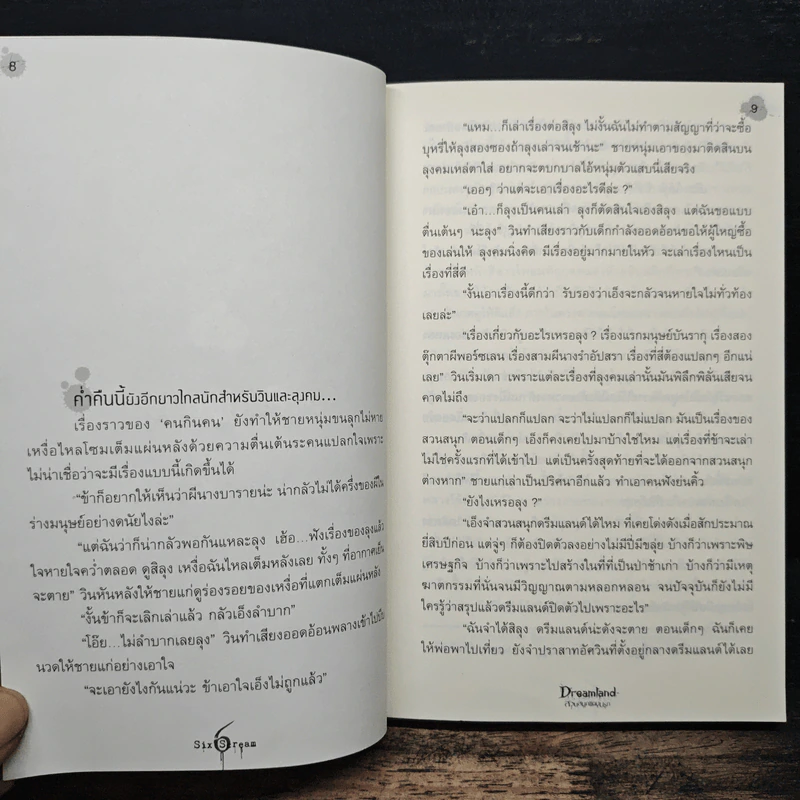 8
ค่ำคืนนี้ยังอีกยาวไกลนักสำหรับวินและลุงคม...
เรื่องราวของ ‘คนกินคน’ ยังทำให้ชายหนุ่มขนลุกไม่หาย
เหงื่อไหลโซมเต็มแผ่นหลังด้วยความตื่นเต้นระคนแปลกใจเพราะ
ไม่น่าเชื่อว่าจะมีเรื่องแบบนี้เกิดขึ้นได้
“ข้าก็อยากให้เห็นว่าผีนางบารายน่ะ น่ากลัวไม่ได้ครึ่งของผีใน
ร่างมนุษย์อย่างดนัยไงล่ะ”
“แต่ฉันว่าก็น่ากลัวพอกันแหละลุง เฮ้อ...ฟังเรื่องของลุงแล้ว
ใจหายใจคว่ำตลอด ดูสิลุง เหงื่อฉันไหลเต็มหลังเลย ทั้งๆ ที่อากาศเย็น
จะตาย” วินหันหลังให้ชายแก่ดูร่องรอยของเหงื่อที่แตกเต็มแผ่นหลัง
“งั้นข้าก็จะเลิกเล่าแล้ว กลัวเอ็งลำบาก”
“โอ๊ย...ไม่ลำบากเลยลุง” วินทำเสียงออดอ้อนพลางเข้าไปบีบ
นวดให้ชายแก่อย่างเอาใจ
“จะเอายังไงกันแน่วะ ข้าเอาใจเอ็งไม่ถูกแล้ว”
Six Scream
9
“แหม...ก็เล่าเรื่องต่อสิลุง ไม่งั้นฉันไม่ทำตามสัญญาที่ว่าจะซื้อ
บุหรี่ให้ลุงสองซองถ้าลุงเล่าจนเช้านะ” ชายหนุ่มเอาของมาติดสินบน
ลุงคมเหล่ตาใส่ อยากจะตบกบาลไอ้หนุ่มตัวแสบนี่เสียจริง
“เออๆ ว่าแต่จะเอาเรื่องอะไรดีล่ะ ?”
“เอ้า...ก็ลุงเป็นคนเล่า ลุงก็ตัดสินใจเองสิลุง แต่ฉันขอแบบ
ตื่นเต้นๆ นะลุง” วินทำเสียงราวกับเด็กกำลังออดอ้อนขอให้ผู้ใหญ่ซื้อ
ของเล่นให้ ลุงคมนิ่งคิด มีเรื่องอยู่มากมายในหัว จะเล่าเรื่องไหนเป็น
เรื่องที่สี่ดี
“งั้นเอาเรื่องนี้ดีกว่า รับรองว่าเอ็งจะกลัวจนหายใจไม่ทั่วท้อง
เลยล่ะ”
“เรื่องเกี่ยวกับอะไรเหรอลุง ? เรื่องแรกมนุษย์บันรากุ เรื่องสอง
ตุ๊กตาผีพอร์ซเลน เรื่องสามผีนางรำอัปสรา เรื่องที่สี่ต้องแปลกๆ อีกแน่
เลย” วินเริ่มเดา เพราะแต่ละเรื่องที่ลุงคมเล่านั้นมันพิลึกพิลั่นเสียจน
คาดไม่ถึง
“จะว่าแปลกก็แปลก จะว่าไม่แปลกก็ไม่แปลก มันเป็นเรื่องของ
สวนสนุก ตอนเด็กๆ เอ็งก็คงเคยไปมาบ้างใช่ไหม แต่เรื่องที่ข้าจะเล่า
ไม่ใช่ครั้งแรกที่ได้เข้าไป แต่เป็นครั้งสุดท้ายที่จะได้ออกจากสวนสนุก
ต่างหาก” ชายแก่เล่าเป็นปริศนาอีกแล้ว ทำเอาคนฟังย่นคิ้ว
“ยังไงเหรอลุง ?”
“เอ็งจำสวนสนุกดรีมแลนด์ได้ไหม ที่เคยโด่งดังเมื่อสักประมาณ
ยี่สิบปีก่อน แต่จู่ๆ ก็ต้องปิดตัวลงอย่างไม่มีปี่มีขลุ่ย บ้างก็ว่าเพราะพิษ
เศรษฐกิจ บ้างก็ว่าเพราะไปสร้างในที่ที่เป็นป่าช้าเก่า บ้างก็ว่ามีเหตุ
ฆาตกรรมที่นั่นจนมีวิญญาณตามหลอกหลอน จนปัจจุบันก็ยังไม่มี
ใครรู้ว่าสรุปแล้วดรีมแลนด์ปิดตัวไปเพราะอะไร”
“ฉันจำได้สิลุง ดรีมแลนด์น่ะดังจะตาย ตอนเด็กๆ ฉันก็เคย
ให้พ่อพาไปเที่ยว ยังจำปราสาทอัศวินที่ตั้งอยู่กลางดรีมแลนด์ได้เลย
Dreamland